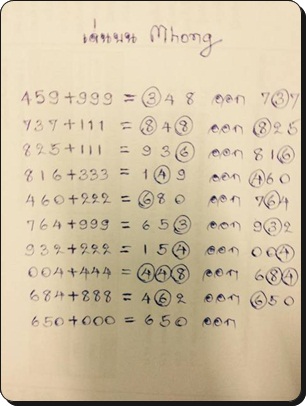 เด่นบน Mhong
459+999 = 348 ออก 737
737+111 = 848 ออก 825
825+111 = 936 ออก 816
816+333 = 149 ออก 460
460+222 = 680 ออก 764
764+999 = 653 ออก 932
932+222 = 154 ออก 004
004+444 = 448 ออก 684
684+888 = 462 ออก 650
650+000 = 650 ออก